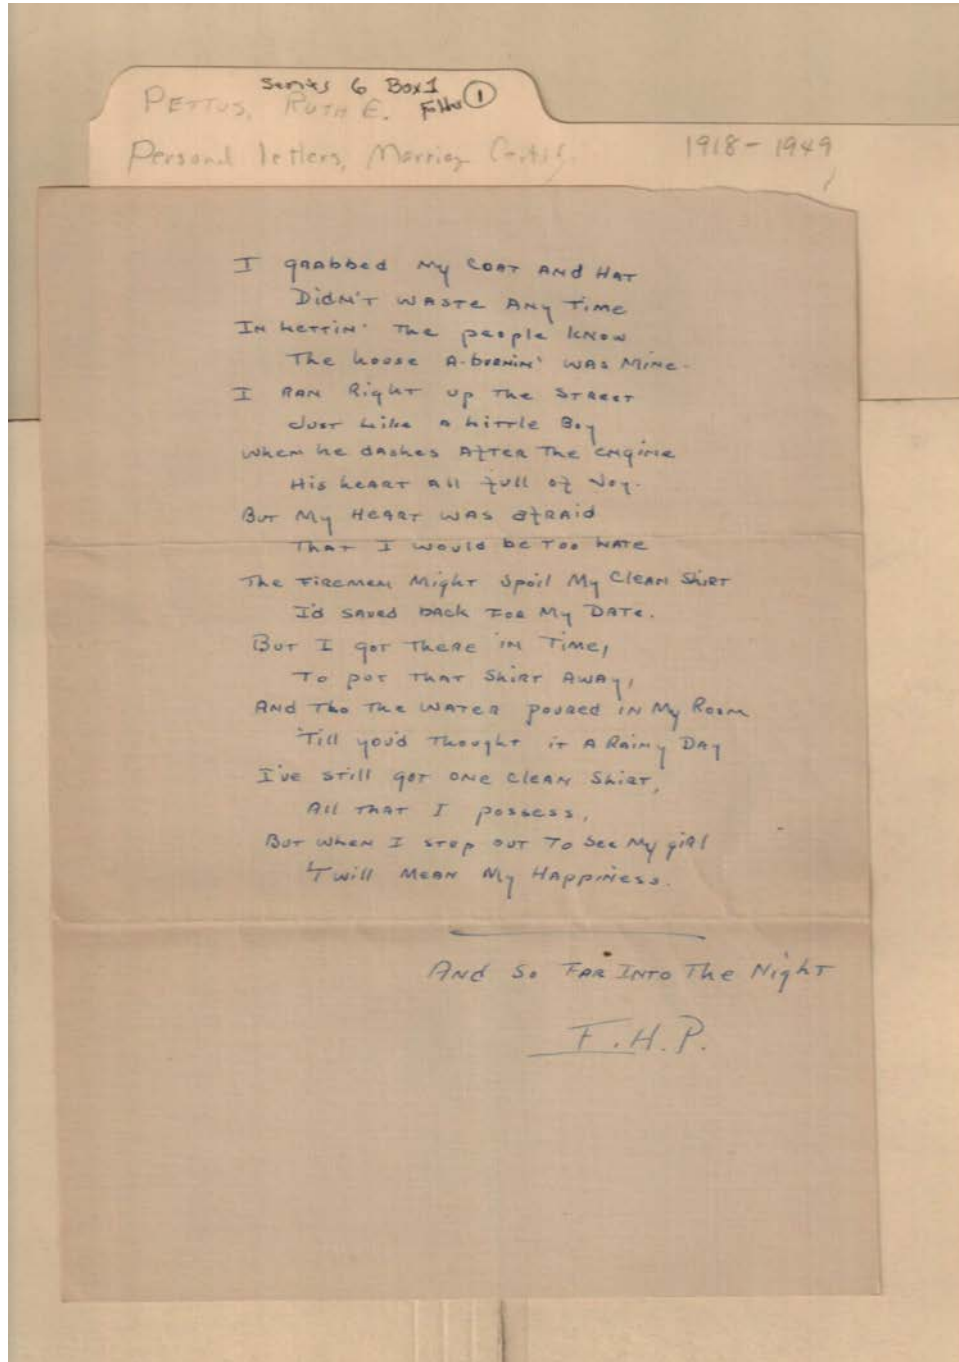 Series 6 Box 1
PETTUS, RUTH E. Folder 1
Personal letters, Marriag Certif.
1918-1949
I grabbed My Coat And Hat
Didn't waste Any Time
In Lettin' The people know
The house A-burnin' was Mine.
I RAN Right up The Street
Just Like a Little Boy
When he dashes After The engine
His heart all full of Joy.
But My Heart was afraid
That I would be Too Late
The Firemen Might Spoil My Clean Shirt
I'd saved back For My Date.
But I got There in Time,
To put That Shirt Away,
And Tho The Water poured in My Room
'Till you'd Thought it A Rainy Day
I've still got one clean Shirt,
All That I possess,
But when I step out To See My girl
'Twill Mean My Happiness.
And So Far Into The Night
F.H.P.